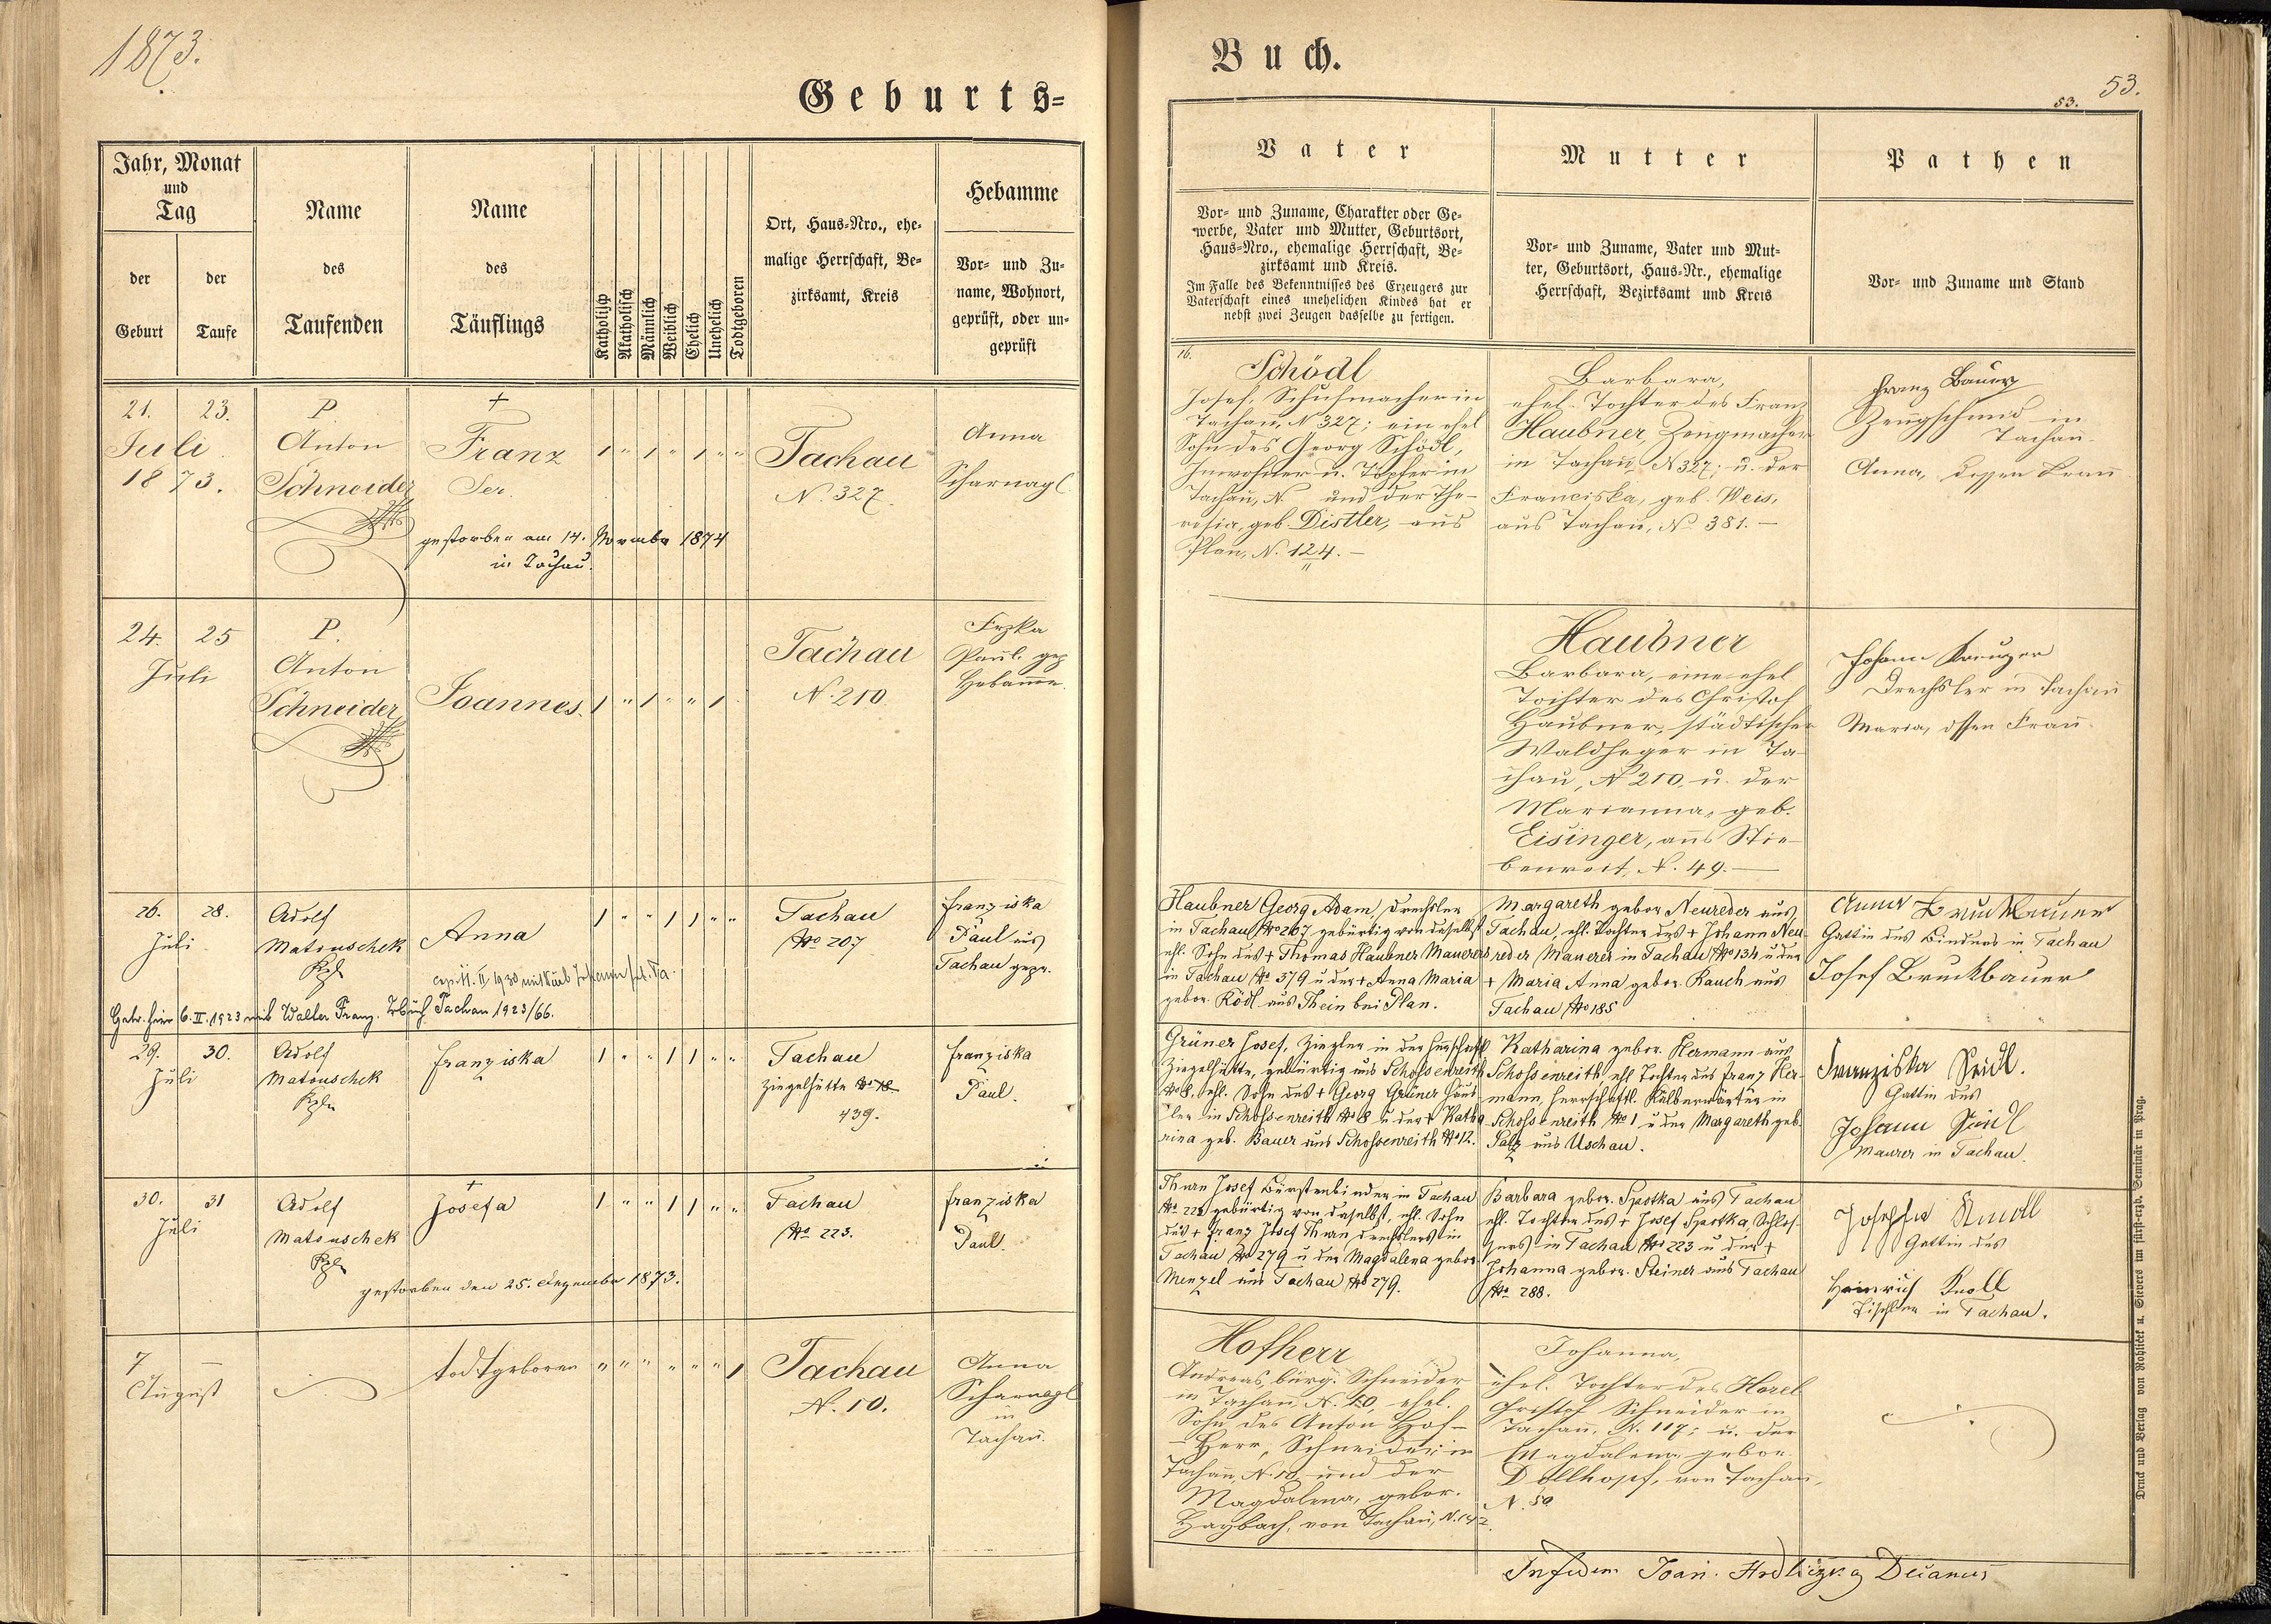 1873.
Geburts=
Buch.
53.
53.
Jahr, Monat
und
Tag
der
Geburt
der
Taufe
Name
des
Taufenden
Name
des
Täuflings
Katholisch
Akatholisch
Männlich
Weiblich
Ehelich
Unehelich
Todtgeboren
Ort, Haus=Nro., ehe=
malige Herrschaft, Be=
zirksamt, Kreis
Hebamme
Vor= und Zu=
name, Wohnort,
geprüft, oder un=
geprüft
Vater
Vor= und Zuname, Charakter oder Ge=
werbe, Vater und Mutter, Geburtsort,
Haus=Nro., ehemalige Herrschaft, Be=
zirksamt und Kreis.
Im Falle des Bekenntnisses des Erzeugers zur
Vaterschaft eines unehelichen Kindes hat er
nebst zwei Zeugen dasselbe zu fertigen.
Mutter
Vor= und Zuname, Vater und Mut=
ter, Geburtsort, Haus=Nr., ehemalige
Herrschaft, Bezirksamt und Kreis
Pathen
Vor= und Zuname und Stand
21. 23.
Juli
1873.
P
Anton
Schneider
+
Franz
Ser.
gestorben am 14. November 1874
in Tachau.
1 " 1 " 1 " "
Tachau
N. 327.
Anna
Scharnagl
16.
Schödl
Josef, Schuhmacher in
Tachau, N 327; ein ehel
Sohn des Georg Schödl,
Inwohner u. Töpfer in
Tachau, N. und der The-
resia, geb. Distler, aus
Plan, N. 124.-
Barbara,
ehel. Tochter des Franz
Haubner, Zeugmacher
in Tachau, N 327; u. der
Franciska, geb. Weis,
aus Tachau, N. 381.-
Franz Bauer
Zeugschmid in
Tachau.
Anna, dessen Frau
24. 25
Juli
P.
Anton
Schneider
Joannes.
1 " 1 " " 1
Tachau
N. 210
Frzka
Paul. gep
Hebamme
Haubner
Barbara, eine ehel
Tochter des Christof
Haubner, städtischer
Waldheger in Ta-
chau, N 210, u. der
Marianna, geb.
Eisinger, aus Stie-
benreit, N. 49.-
Johann Kreuzer
Drechsler in Tachau
Maria, dssen Frau
26. 28.
Juli
Adolf
Matouschek
Kpl
Anna
1 " " 1 1 " "
Tachau
No 207
Franziska
Paul aus
Tachau gepr.
Getr. hier 6. II. 1923 mit Walter Franz. Trbuch Tachau 1923/66.
Haubner Georg Adam, Drechsler
in Tachau No 207 gebürtig von daselbst
ehl. Sohn des + Thomas Haubner Maurers
in Tachau No 379 u der + Anna Maria
gebor. Ködl aus Thein bei Plan.
Margareth gebor Neureder aus
Tachau, ehl. Tochter des + Johann Neu-
reder Maurer in Tachau No 134 u der
+ Maria Anna gebor. Rauch aus
Tachau No 185
Anna Bruckbauer
Gattin des Binders in Tachau
Josef Bruckbauer
29. 30.
Juli
Adolf
Matouschek
Kpl
Franziska
1 " " 1 1 " "
Tachau
Ziegelhütte
439.
Franziska
Paul.
Grüner Josef, Ziegler in der herrschaftl
Ziegelhütte, gebürtig aus Schossenreith
No 8, ehl. Sohn des + Georg Grüner Häus-
ler in Schossenreith No 8 u der + Katha
rina geb. Bauer aus Schossenreith No 12.
Katharina gebor. Hermann aus
Schossenreith ehl Tochter des Franz Her-
mann, herrschaftl. Kälberwärter in
Schossenreith No 1 u der Margareth geb.
Salz aus Uschau.
Franziska Seidl.
Gattin des
Johann Seidl
Maurer in Tachau.
30. 31
Juli
Adolf
Matouschek
Kpl
+
Josefa
gestorben den 25. Dezember 1873.
1 " " 1 1 " "
Tachau
No 223.
Franziska
Paul.
Thurn Josef Bürstenbinder in Tachau
No 223 gebürtig von daselbst, ehl. Sohn
des + Franz Josef Thurn Drechslers in
Tachau No 279 u der Magdalena gebor.
Menzel aus Tachau No 279.
Barbara gebor. Spotka aus Tachau
ehl. Tochter des + Josef Spotka Schlos-
sers in Tachau No 223 u der +
Johanna gebor. Steiner aus Tachau
No 288.
Josepha Knoll
Gattin des
Heinrich Knoll
Tischler in Tachau.
7 —
August
todtgeboren
" " " " " " 1
Tachau
N. 10.
Anna
Scharnagl
in
Tachau.
Hofherr
Andreas, bürg. Schneider
in Tachau, N. 10, ehel.
Sohn des Anton Hof-
Herr, Schneider in
Tachau, N. 10, und der
Magdalena, gebor.
Haybach, von Tachau, N. 142.
Johanna,
ehel. Tochter des Horel
Christof Schneider in
Tachau, N. 117; u. der
Magdalena gebor.
Dollhopf, von Tachau,
N. 50
In fidem Joan. Hrdliczka Decanus
Druck und Verlag von Rohliček u. Sievers im fürst-erzb. Seminär in Prag.